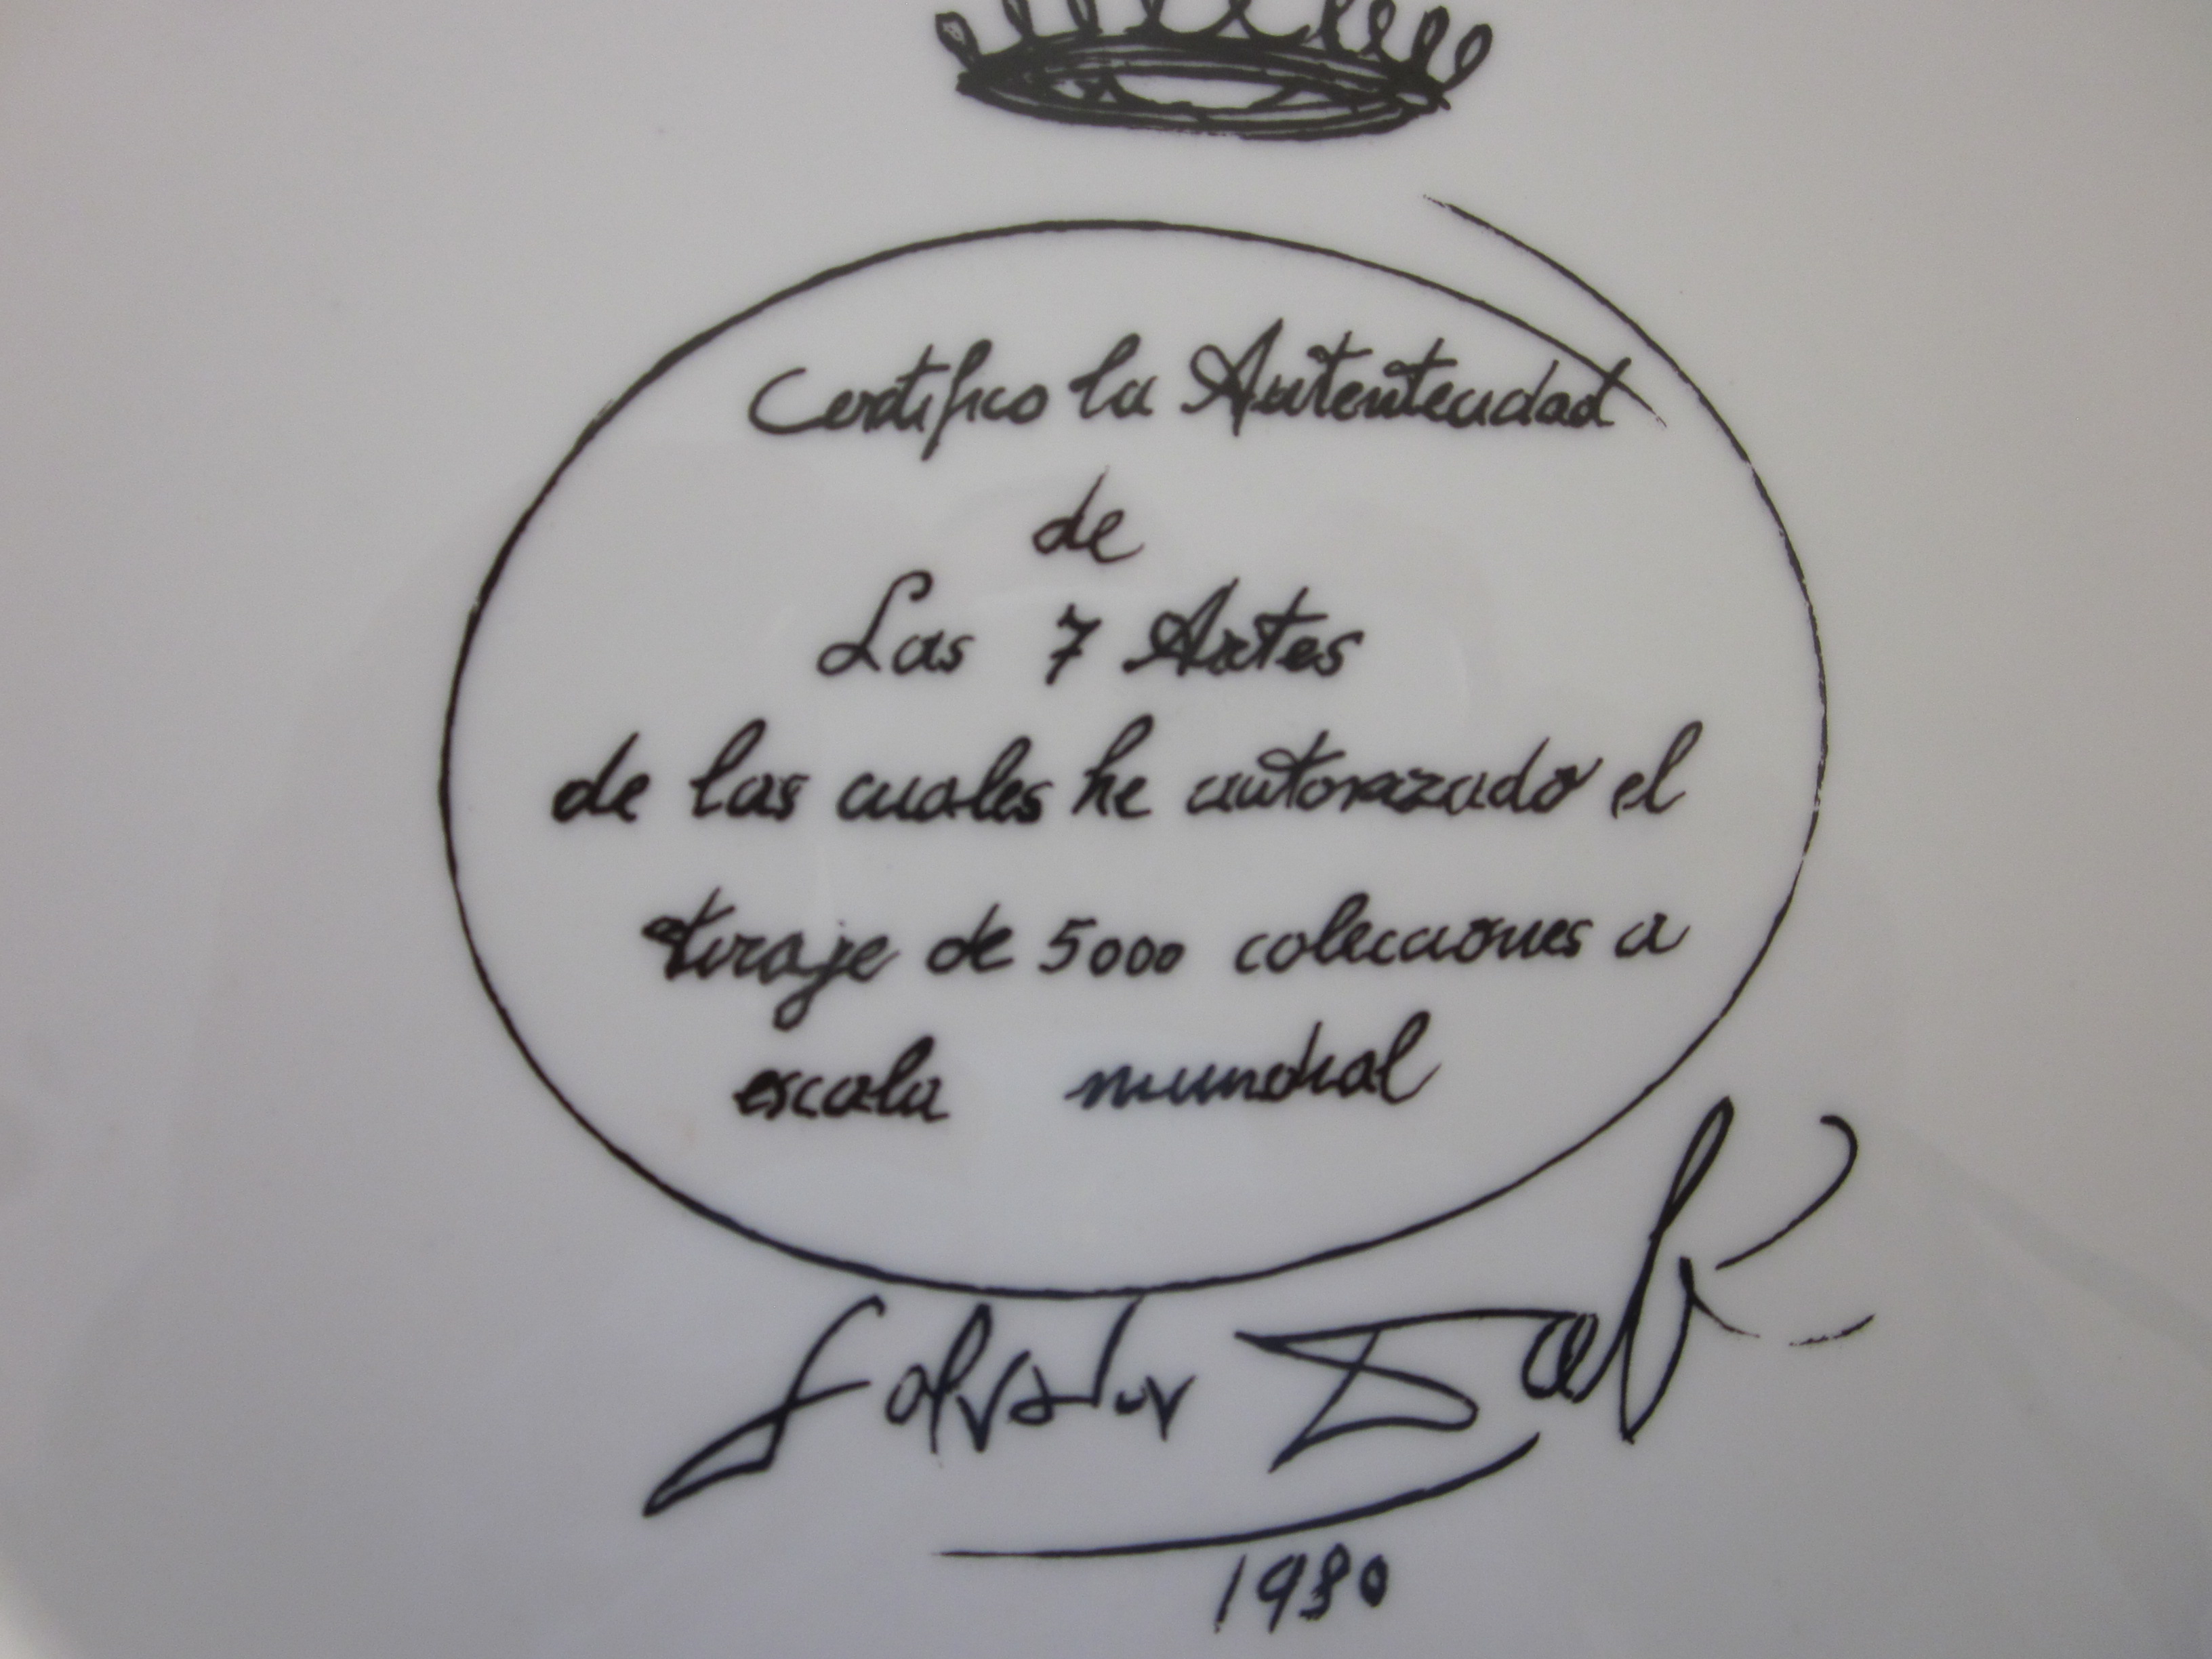 Certifico la Autenteudad
de
Las 7 Artes
de las cuales he autorazado el
tiraje de 5000 colecciones a
escala mundial
Salvador Dalí
1980